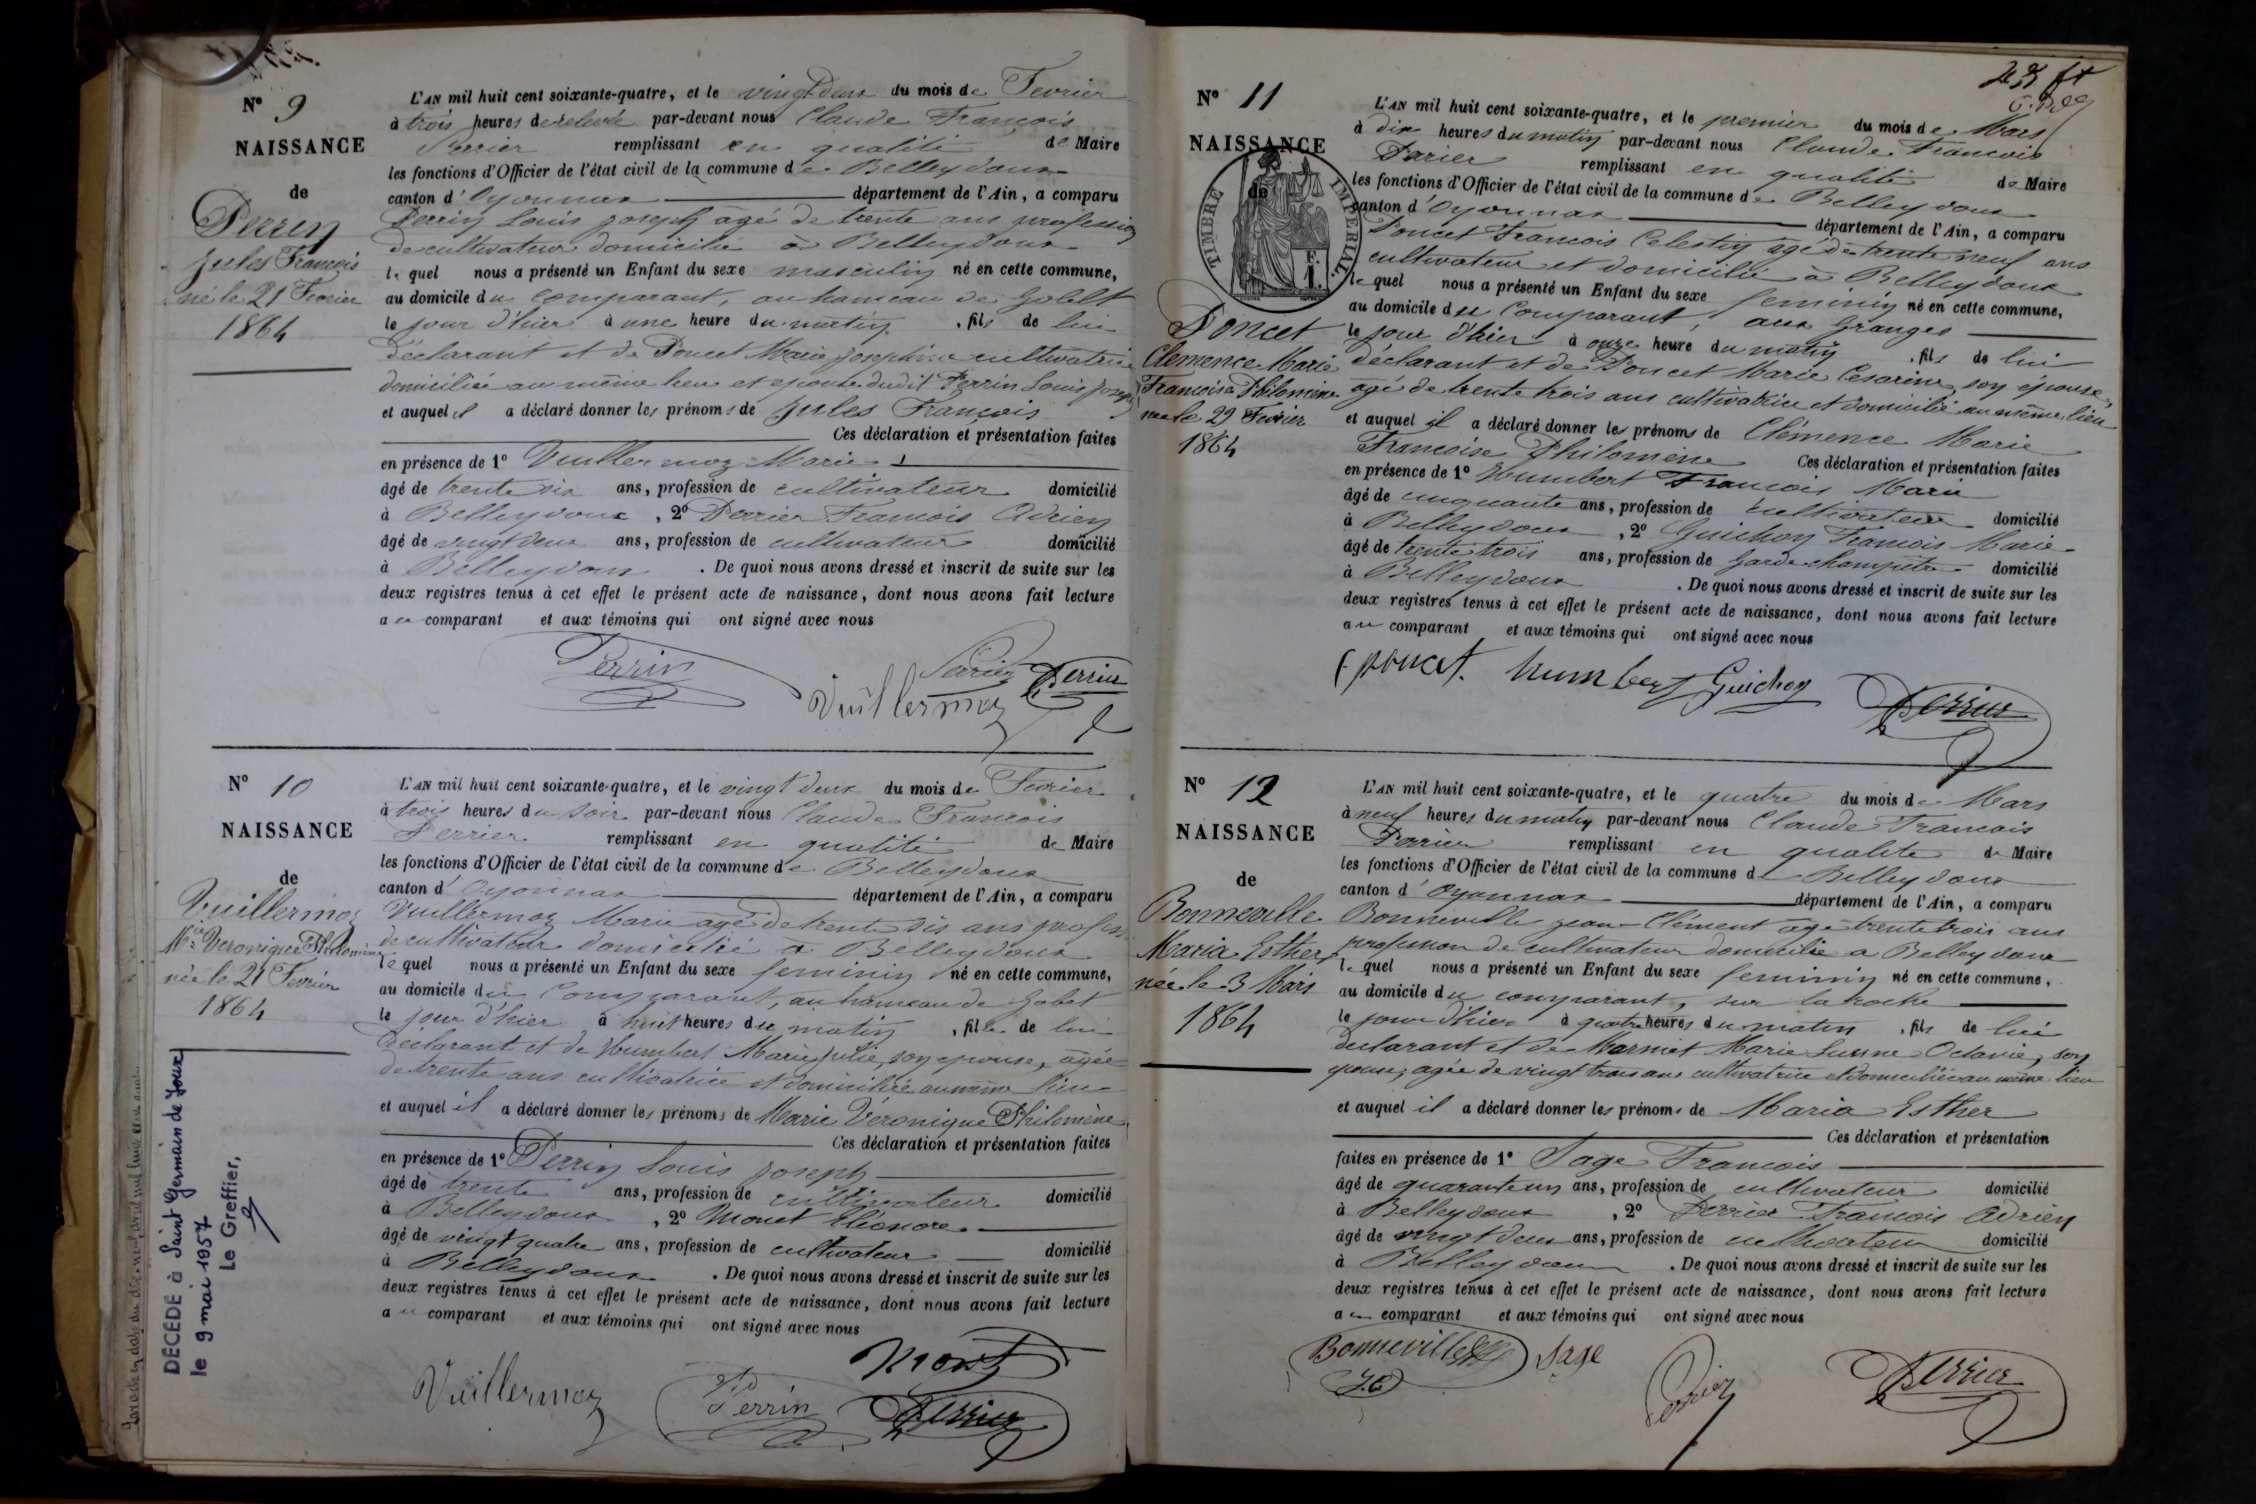 N° 9
NAISSANCE
de
Perrin
Jules François
né le 21 Fevrier
1864
L'AN mil huit cent soixante-quatre, et le vingt deux du mois de Fevrier
à trois heures de relevée par-devant nous Claude François
Perrier remplissant en qualité de Maire
les fonctions d'Officier de l'état civil de la commune de Belleydoux
canton d'Oyonnax département de l'Ain, a comparu
Perrin Louis joseph âgé de trente ans profession
de cultivateur domicilié à Belleydoux
lequel nous a présenté un Enfant du sexe masculin né en cette commune,
au domicile du comparant, au hameau de Gobet
le jour d'hier à une heure du matin, fils de lui
déclarant et de Poncet Marie josephine cultivatrice
domiciliée au même lieu et epouse dudit Perrin Louis joseph
et auquel il a déclaré donner les prénoms de Jules François
Ces déclaration et présentation faites
en présence de 1° Vuillermoz Marie
âgé de trente six ans, profession de cultivateur domicilié
à Belleydoux, 2° Perrier François Adrien
âgé de vingt deux ans, profession de cultivateur domicilié
à Belleydoux. De quoi nous avons dressé et inscrit de suite sur les
deux registres tenus à cet effet le présent acte de naissance, dont nous avons fait lecture
au comparant et aux témoins qui ont signé avec nous
Perrin Vuillermoz Perrier Perrier
N° 10
NAISSANCE
de
Vuillermoz
Mie Veronique Philomène
née le 21 Fevrier
1864
DÉCÉDÉ à Saint Germain de Joux
le 9 mai 1957
Le Greffier,
L'AN mil huit cent soixante-quatre, et le vingt deux du mois de Fevrier
à trois heures du soir par-devant nous Claude François
Perrier remplissant en qualité de Maire
les fonctions d'Officier de l'état civil de la commune de Belleydoux
canton d'Oyonnax département de l'Ain, a comparu
Vuillermoz Marie agé de trente six ans profession
de cultivateur domicilié a Belleydoux
lequel nous a présenté un Enfant du sexe feminin né en cette commune,
au domicile du comparant, au hameau de Gobet
le jour d'hier à huit heures du matin, fille de lui
déclarant et de Humbert Marie julie, son epouse, agée
de trente ans cultivatrice et domiciliée au même lieu
et auquel il a déclaré donner les prénoms de Marie Véronique Philomène
Ces déclaration et présentation faites
en présence de 1° Perrin Louis joseph
âgé de trente ans, profession de cultivateur domicilié
à Belleydoux, 2° Monet Eléonore
âgé de vingt quatre ans, profession de cultivateur domicilié
à Belleydoux. De quoi nous avons dressé et inscrit de suite sur les
deux registres tenus à cet effet le présent acte de naissance, dont nous avons fait lecture
au comparant et aux témoins qui ont signé avec nous
Vuillermoz Perrin Perrier
N° 11
NAISSANCE
de
TIMBRE IMPERIAL
F.
1.
Poncet
Clemence Marie
Françoise Philomène
née le 29 Fevrier
1864
L'AN mil huit cent soixante-quatre, et le premier du mois de Mars
à dix heures du matin par-devant nous Claude François
Perier remplissant en qualité de Maire
les fonctions d'Officier de l'état civil de la commune de Belleydoux
canton d'Oyonnax département de l'Ain, a comparu
Poncet François Celestin âgé de trente neuf ans
cultivateur et domicilié à Belleydoux
lequel nous a présenté un Enfant du sexe feminin né en cette commune,
au domicile du comparant, aux Granges
le jour d'hier à onze heure du matin, fils de lui
déclarant et de Poncet Marie Cesarine, son épouse,
agé de trente trois ans cultivatrice et domicilié au même lieu
et auquel il a déclaré donner les prénoms de Clémence Marie
Françoise Philomène Ces déclaration et présentation faites
en présence de 1° Humbert François Marie
âgé de cinquante ans, profession de cultivateur domicilié
à Belleydoux, 2° Guichon François Marie
âgé de trente trois ans, profession de garde champêtre domicilié
à Belleydoux. De quoi nous avons dressé et inscrit de suite sur les
deux registres tenus à cet effet le présent acte de naissance, dont nous avons fait lecture
au comparant et aux témoins qui ont signé avec nous
poncet. humbert Guichon Perrier
N° 12
NAISSANCE
de
Bonneville
Maria Esther
née le 3 Mars
1864
L'AN mil huit cent soixante-quatre, et le quatre du mois de Mars
à neuf heures du matin par-devant nous Claude François
Perrier remplissant en qualite de Maire
les fonctions d'Officier de l'état civil de la commune d Belleydoux
canton d'Oyonnax département de l'Ain, a comparu
Bonneville jean-Clément agé trente trois ans
profession de cultivateur domicilié a Belleydoux
lequel nous a présenté un Enfant du sexe feminin né en cette commune,
au domicile du comparant, sur la roche
le jour d'hier à quatre heures du matin, fils de lui
declarant et de Marie Octavie, son
epouse, agée de vingt trois ans cultivatrice et domiciliée au même lieu
et auquel il a déclaré donner les prénoms de Maria Esther
Ces déclaration et présentation
faites en présence de 1° Sage François
âgé de quarante un ans, profession de cultivateur domicilié
à Belleydoux, 2° Perrier François Adrien
âgé de vingt deux ans, profession de cultivateur domicilié
à Belleydoux. De quoi nous avons dressé et inscrit de suite sur les
deux registres tenus à cet effet le présent acte de naissance, dont nous avons fait lecture
au comparant et aux témoins qui ont signé avec nous
Bonneville Sage Perrier Perrier